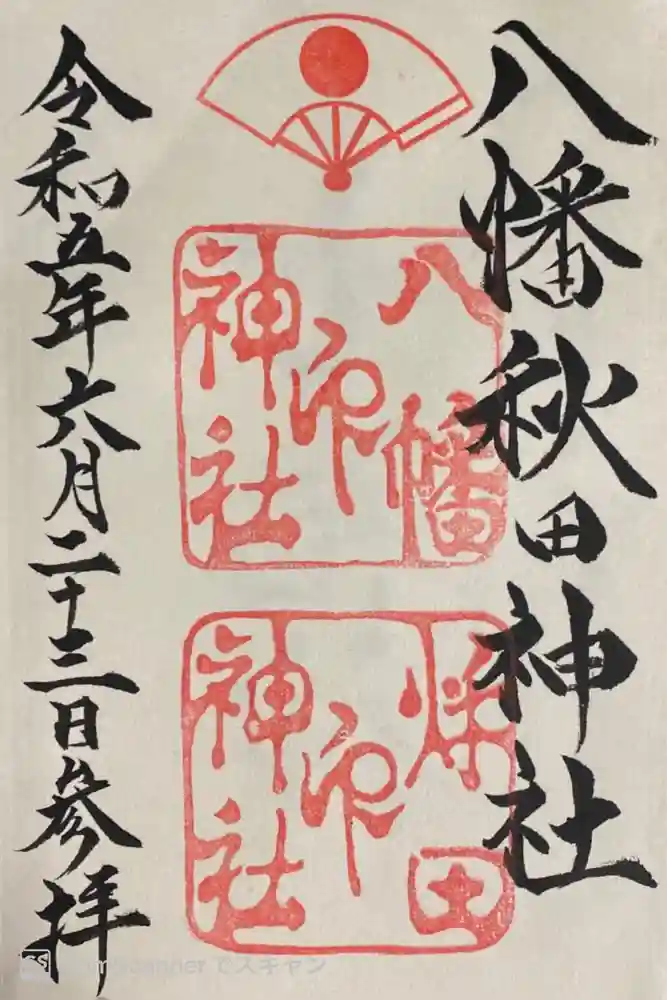 八幡秋田神社
八幡
印
神社
秋田
印
神社
令和五年六月二十三日參拝
CS CamScanner でスキャン